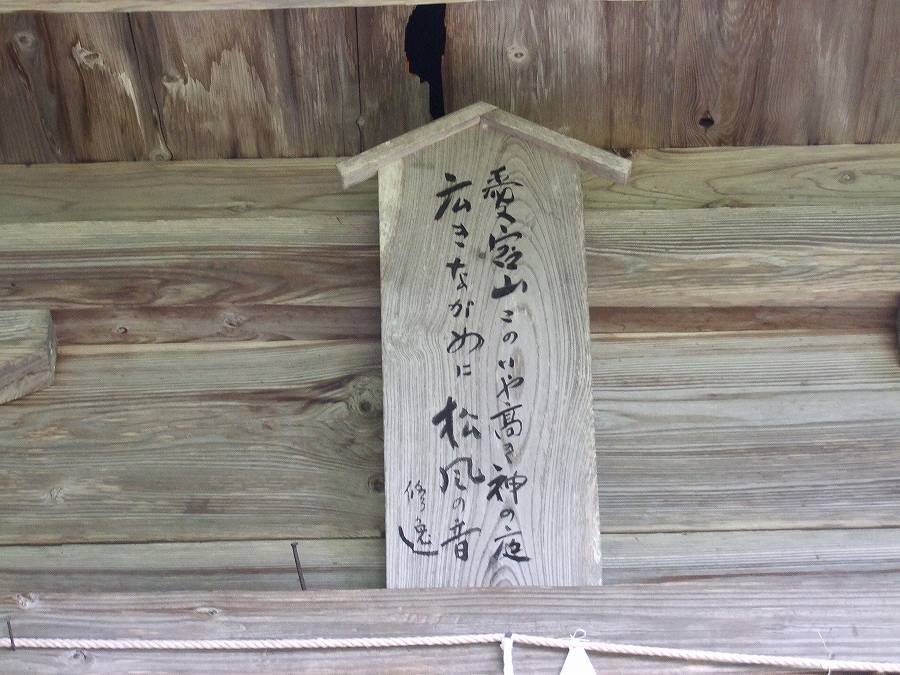 愛宕山このいや高き神の庭
広きながめに松風の音
修逸